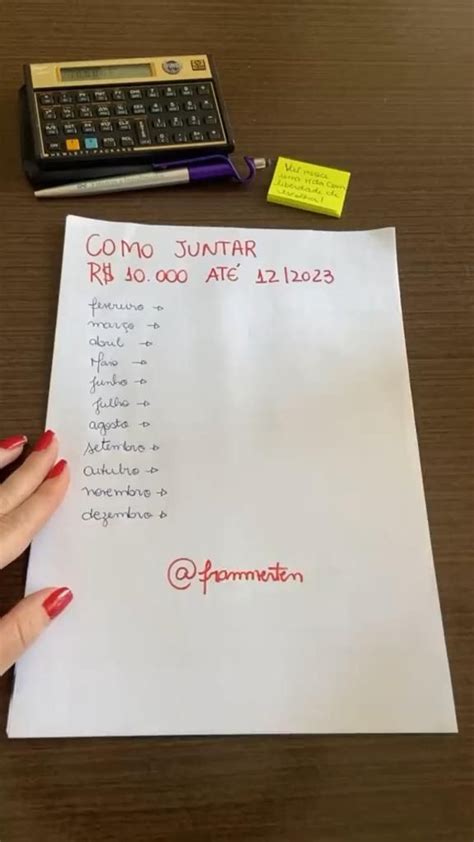 Vai nessa
uma vida com
liberdade de
escolha!
COMO JUNTAR
R$ 10.000 ATÉ 12/2023
fevereiro →
março →
abril →
Maio →
junho →
julho →
agosto →
setembro →
outubro →
novembro →
dezembro →
@frammerten